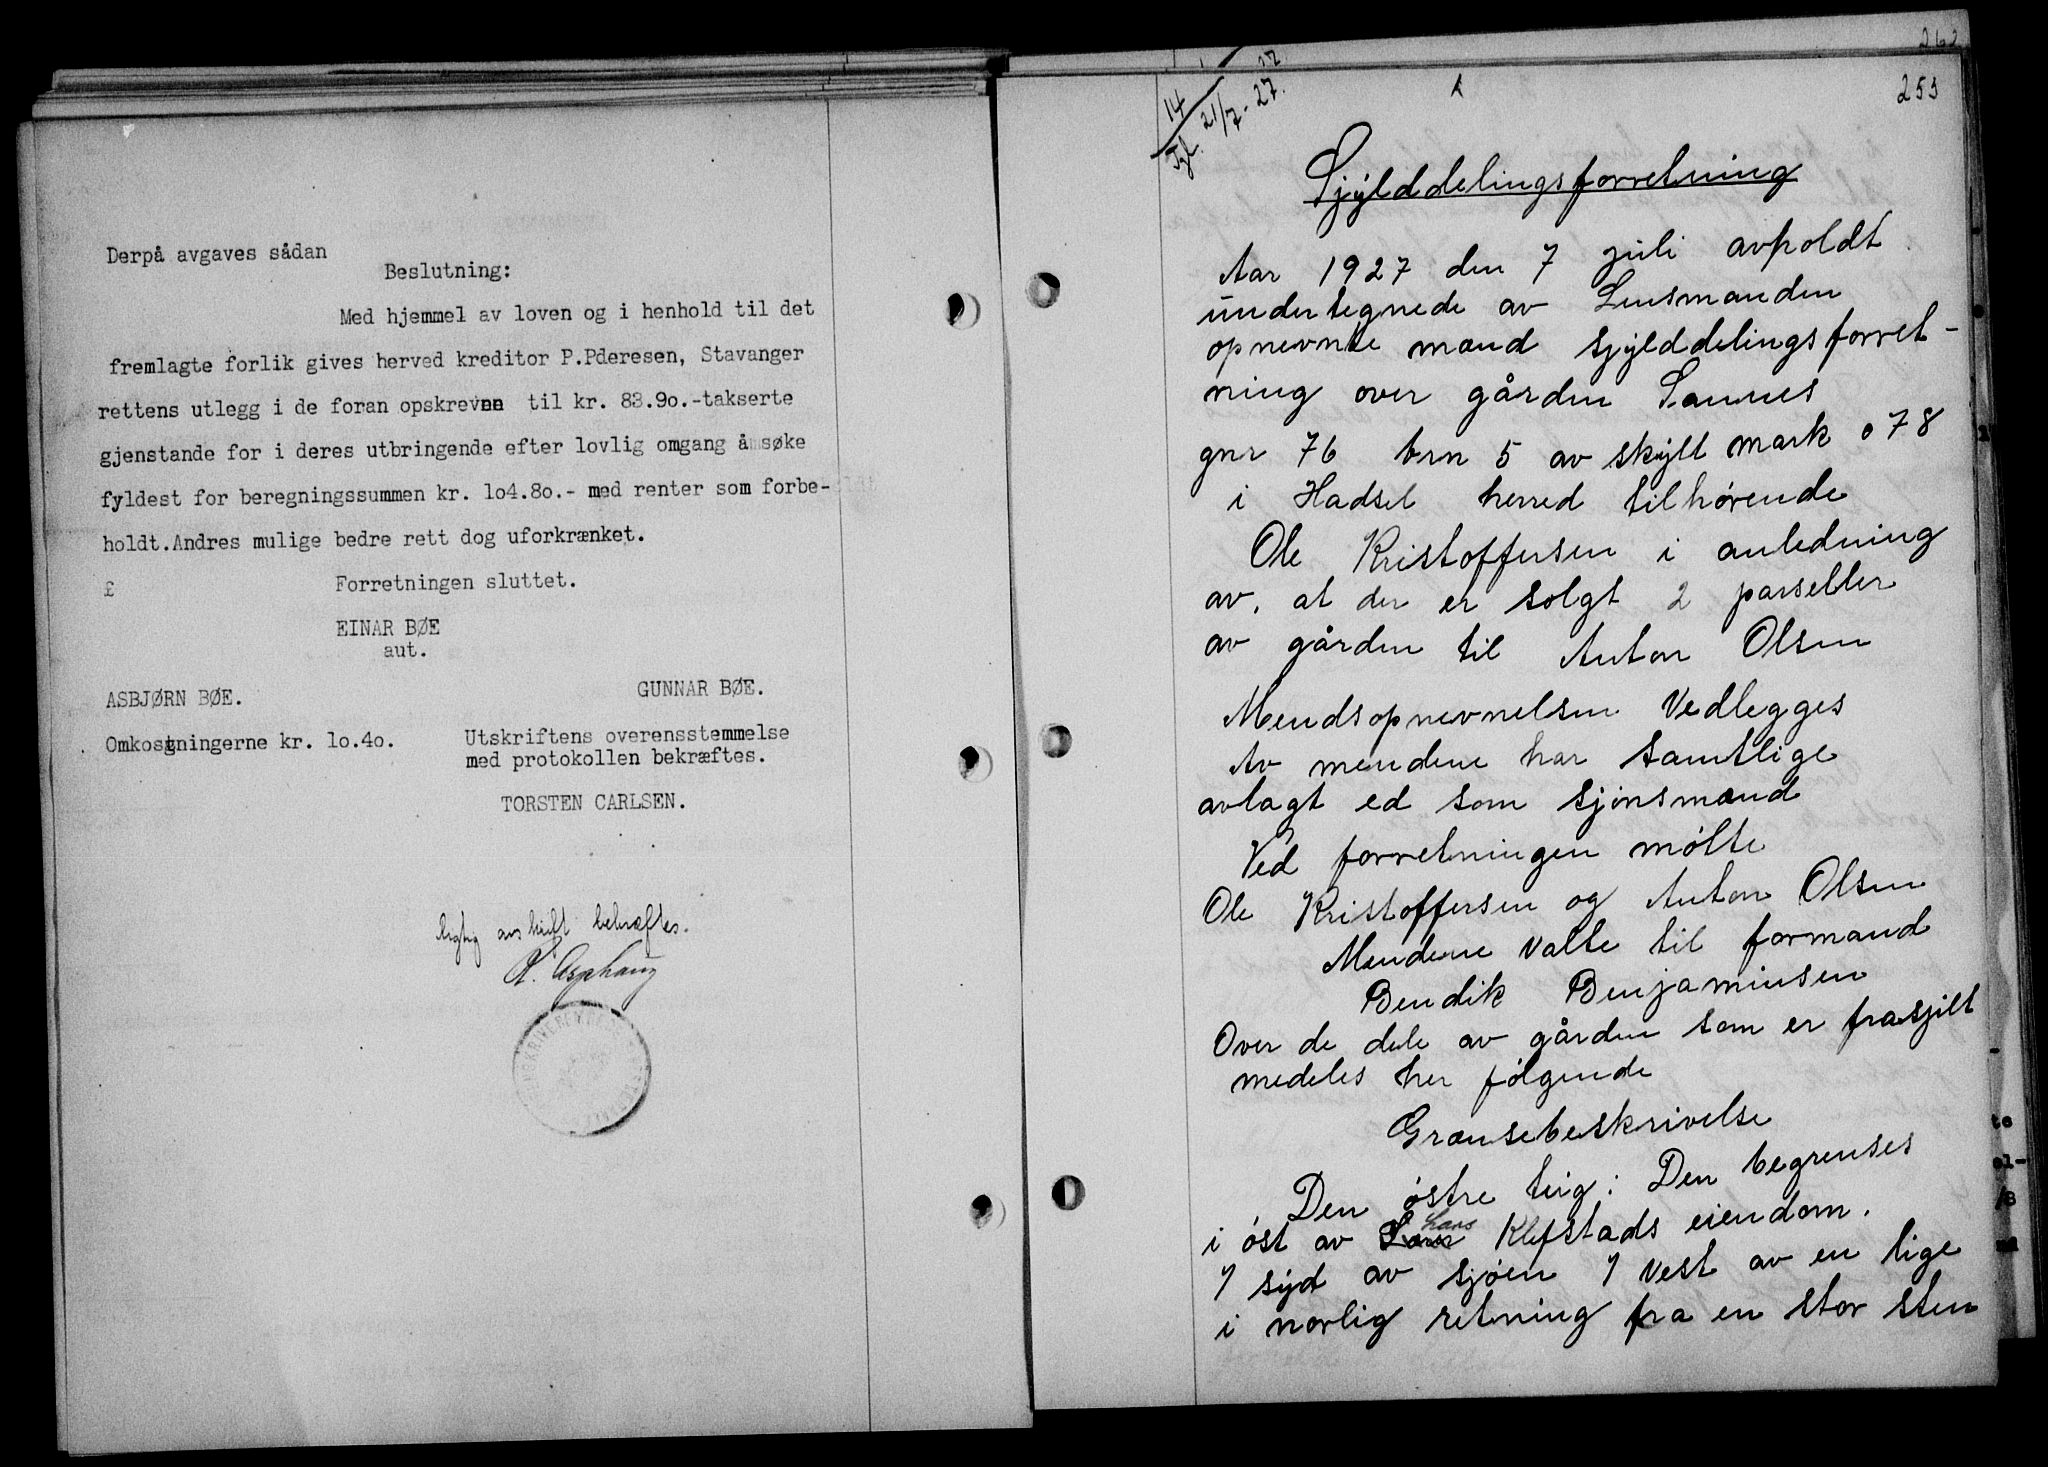 Derpå avgaves sådan
Beslutning:
Med hjemmel av loven og i henhold til det
fremlagte forlik gives herved kreditor P.Pderesen, Stavanger
rettens utlegg i de foran opskrevne til kr. 83.9o.-takserte
gjenstande for i deres utbringende efter lovlig omgang å søke
fyldest for beregningssummen kr. 1o4.8o.- med renter som forbe-
holdt.Andres mulige bedre rett dog uforkrænket.
£ Forretningen sluttet.
EINAR BØE
aut.
ASBJØRN BØE. GUNNAR BØE.
Omkostningerne kr. 1o.4o.
Utskriftens overensstemmelse
med protokollen bekræftes.
TORSTEN CARLSEN.
Rigtig avskrift bekræftes.
262
253
14
Tgl. 21/7-27.
Sjylddelingsforretning
Aar 1927 den 7 juli avholdt
undertegnede av Lensmanden
opnevnte mænd sjylddelingsforret-
ning over gården Sannes
gnr 76 brn 5 av skyll mark 0 78
i Hadsel herred tilhørende
Ole Kristoffersen i anledning
av, at der er solgt 2 parseller
av gården til Anton Olsen
Mendsopnevnelsen vedlegges
Av mendene har samtlige
avlagt ed som sjønsmænd
Ved forretningen møtte
Ole Kristoffersen og Anton Olsen
Mændene valte til formand
Bendik Benjaminsen
Over de dele av gården som er frasjilt
medeles her følgende
Grænsebeskrivelse
Den østre teig: Den begrenses
i øst av Lars Klefstads eiendom.
I syd av sjøen I vest av en lige
i norlig retning fra en stor sten